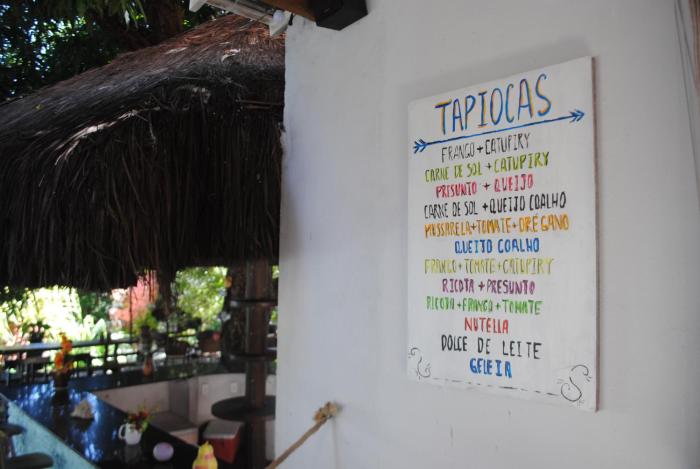 TAPIOCAS
FRANGO + CATUPIRY
CARNE DE SOL + CATUPIRY
PRESUNTO + QUEIJO
CARNE DE SOL + QUEIJO COALHO
MUSSARELA + TOMATE + ORÉGANO
QUEIJO COALHO
FRANGO + TOMATE + CATUPIRY
RICOTA + PRESUNTO
RICOTA + FRANGO + TOMATE
NUTELLA
DOLCE DE LEITE
GELEIA